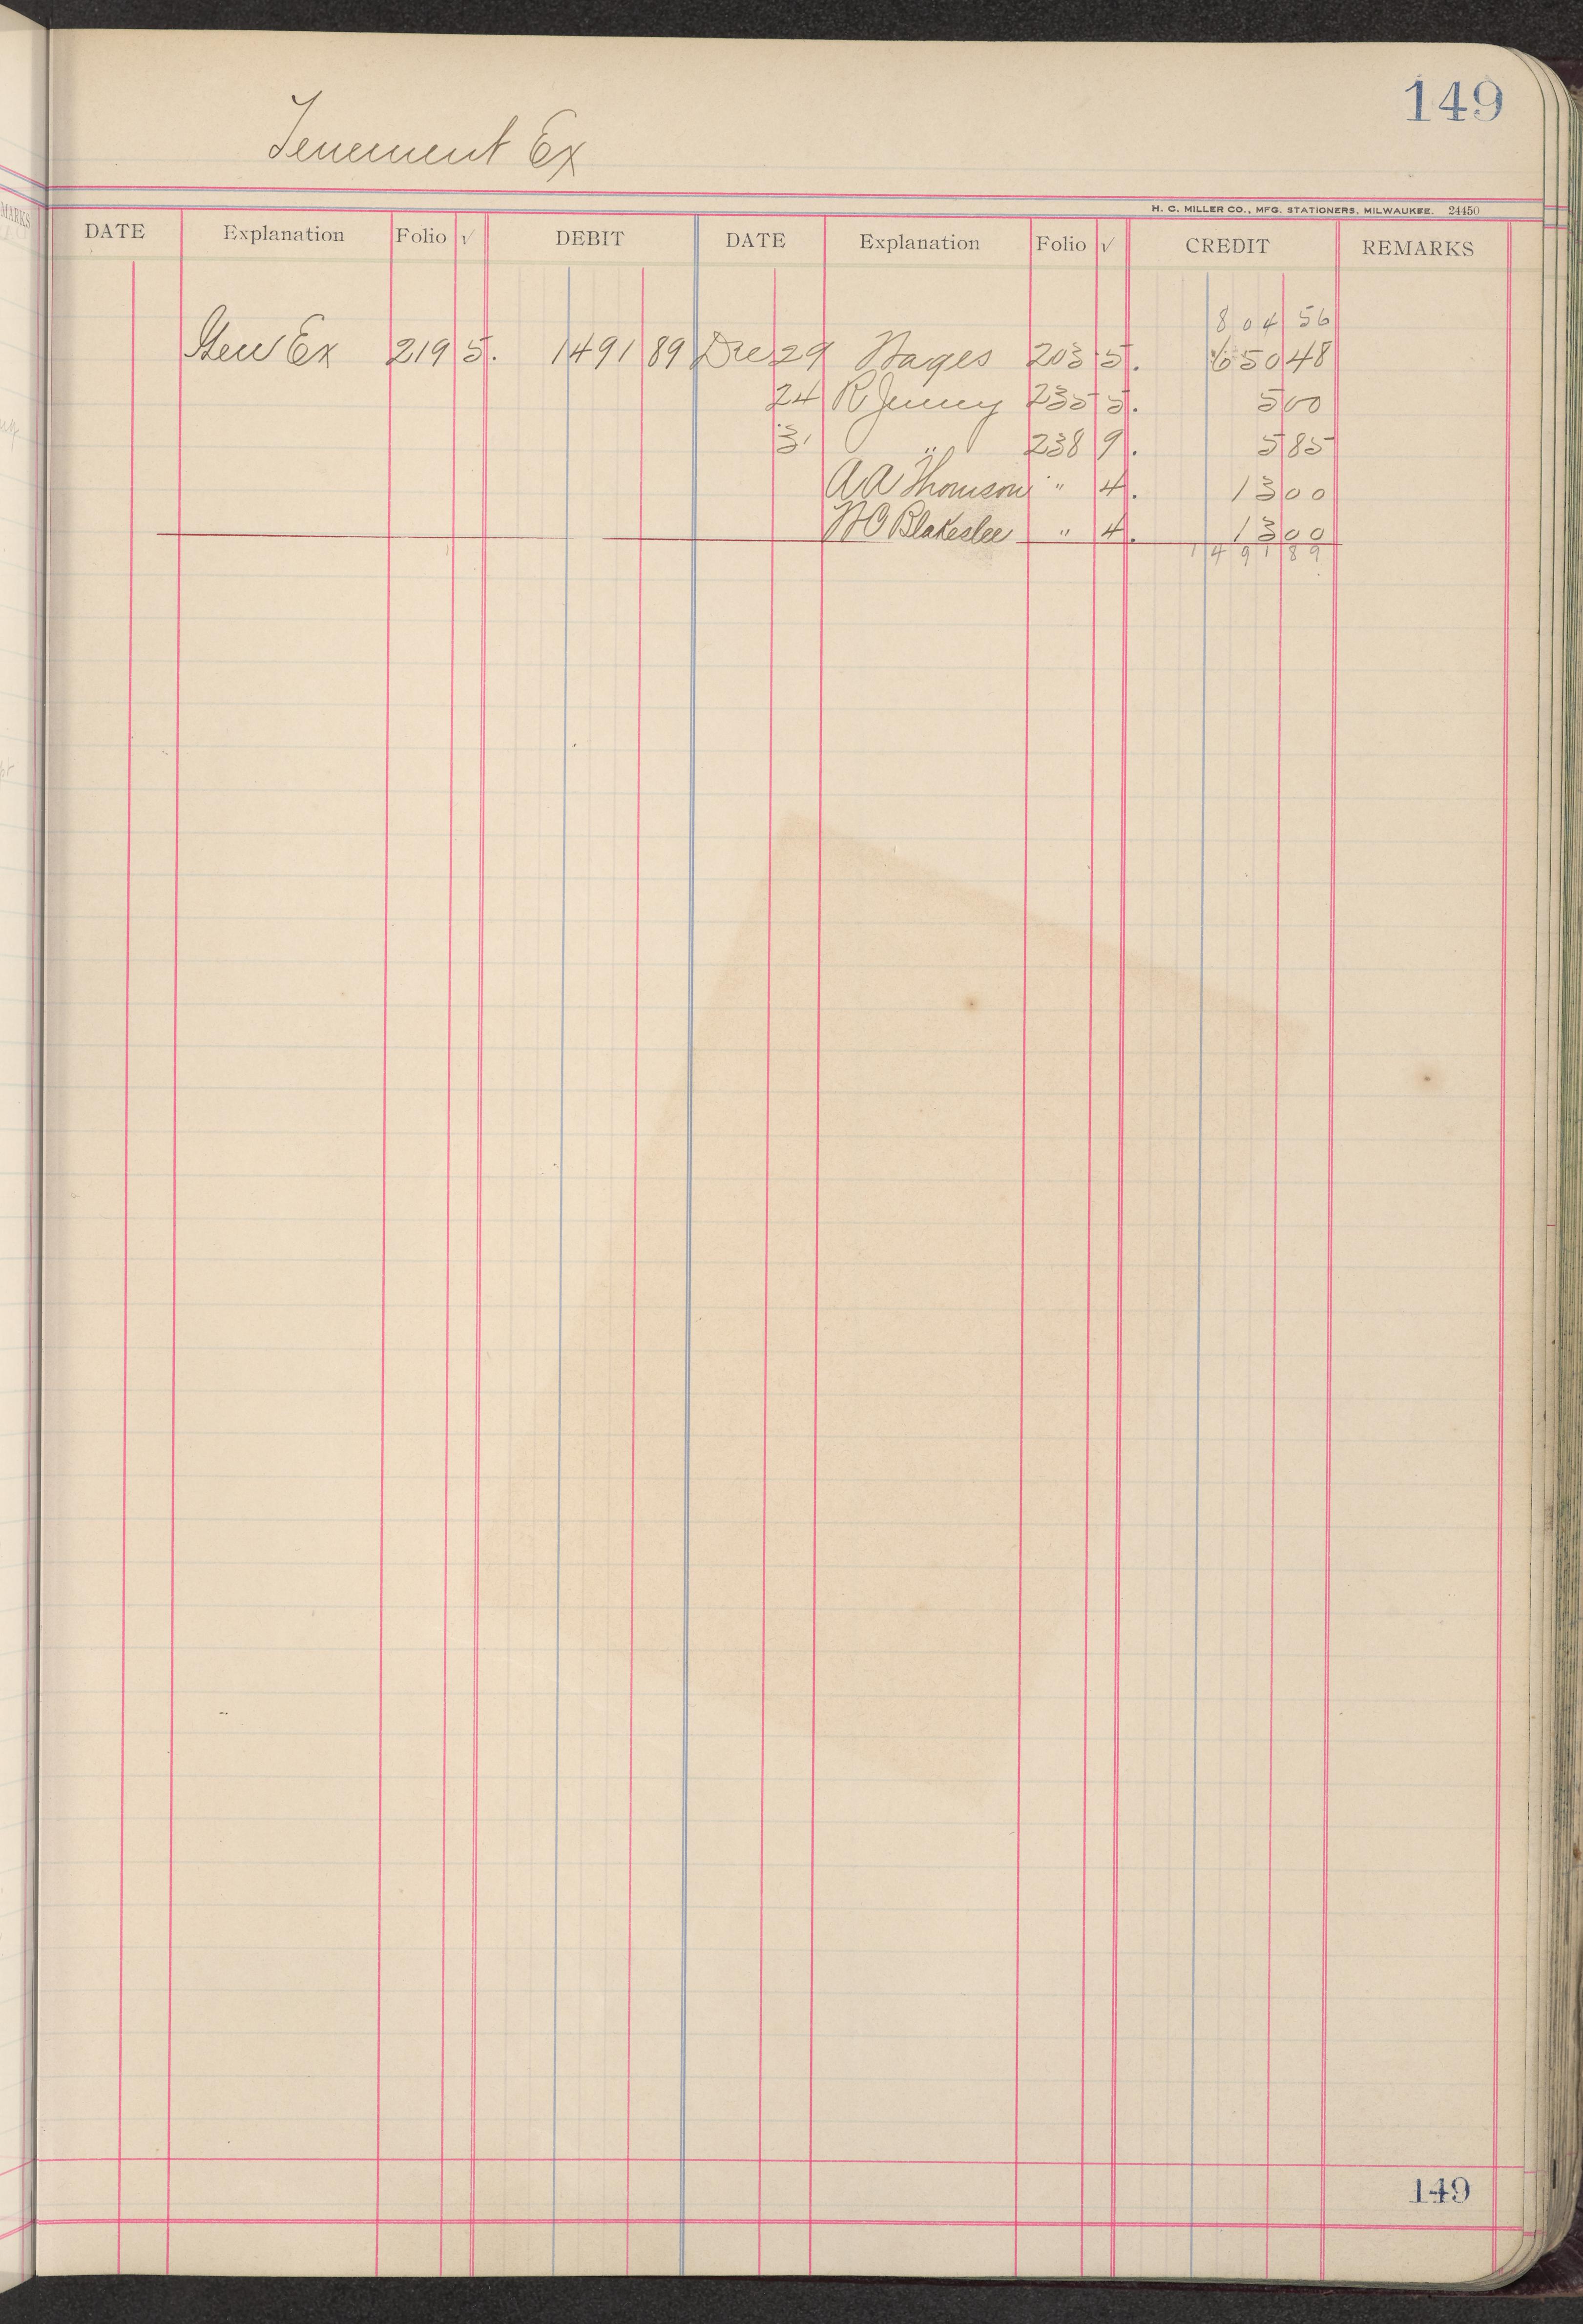 149
Tenement Ex
H. C. MILLER CO., MFG. STATIONERS, MILWAUKEE. 24450
DATE Explanation Folio √ DEBIT DATE Explanation Folio √ CREDIT REMARKS
804 56
Gen Ex 219 5. 1491 89 Dec 29 Wages 203 5. 650 48
24 R Jenny 235 5. 5 00
31 " 238 9. 5 85
A A Thomson " 4. 13 00
W O Blakeslee " 4. 13 00
1491 89
149